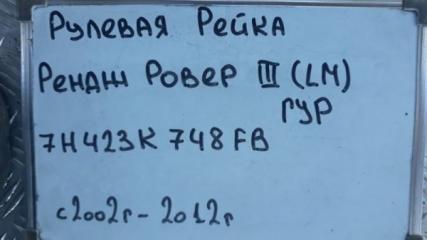 Рулевая Рейка
Рендж Ровер III (LM)
ГУР
7H423K 748FB
с2002г-2012г